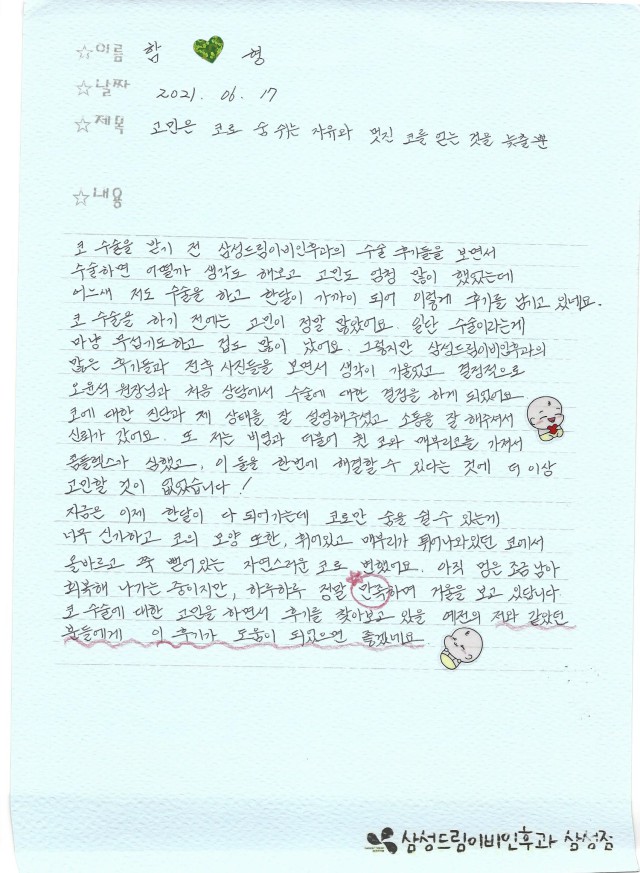 ☆이름 함 형
☆날짜 2021. 06. 17
☆제목 고민은 코로 숨 쉬는 자유와 멋진 코를 얻는 것을 늦출 뿐
☆내용
코 수술을 받기 전 삼성드림이비인후과의 수술 후기들을 보면서
수술하면 어떨까 생각도 해보고 고민도 엄청 많이 했었는데
어느새 저도 수술을 하고 한달이 가까이 되어 이렇게 후기를 남기고 있네요.
코 수술을 하기 전에는 고민이 정말 많았어요. 일단 수술이라는게
마냥 무섭기도하고 겁도 많이 났어요. 그렇지만 삼성드림이비인후과의
많은 후기들과 전후 사진들을 보면서 생각이 기울었고 결정적으로
오윤석 원장님과 처음 상담에서 수술에 대한 결정을 하게 되었어요
코에 대한 진단과 제 상태를 잘 설명해주셨고 소통을 잘 해주셔서
신뢰가 갔어요. 또 저는 비염과 더불어 휜 코와 매부리코를 가져서
콤플렉스가 심했고, 이 둘을 한번에 해결할 수 있다는 것에 더 이상
고민할 것이 없었습니다!
지금은 이제 한달이 다 되어가는데 코로만 숨을 쉴 수 있는게
너무 신기하고 코의 모양 또한, 휘어있고 매부리가 튀어나와있던 코에서
올바르고 쭉 뻗어있는 자연스러운 코로 변했어요. 아직 멍은 조금 남아
회복해 나가는 중이지만, 하루하루 정말 만족하며 거울을 보고 있답니다
코 수술에 대한 고민을 하면서 후기를 찾아보고 있을 예전의 저와 같았던
분들에게 이 후기가 도움이 되었으면 좋겠네요.
삼성드림이비인후과 삼성점